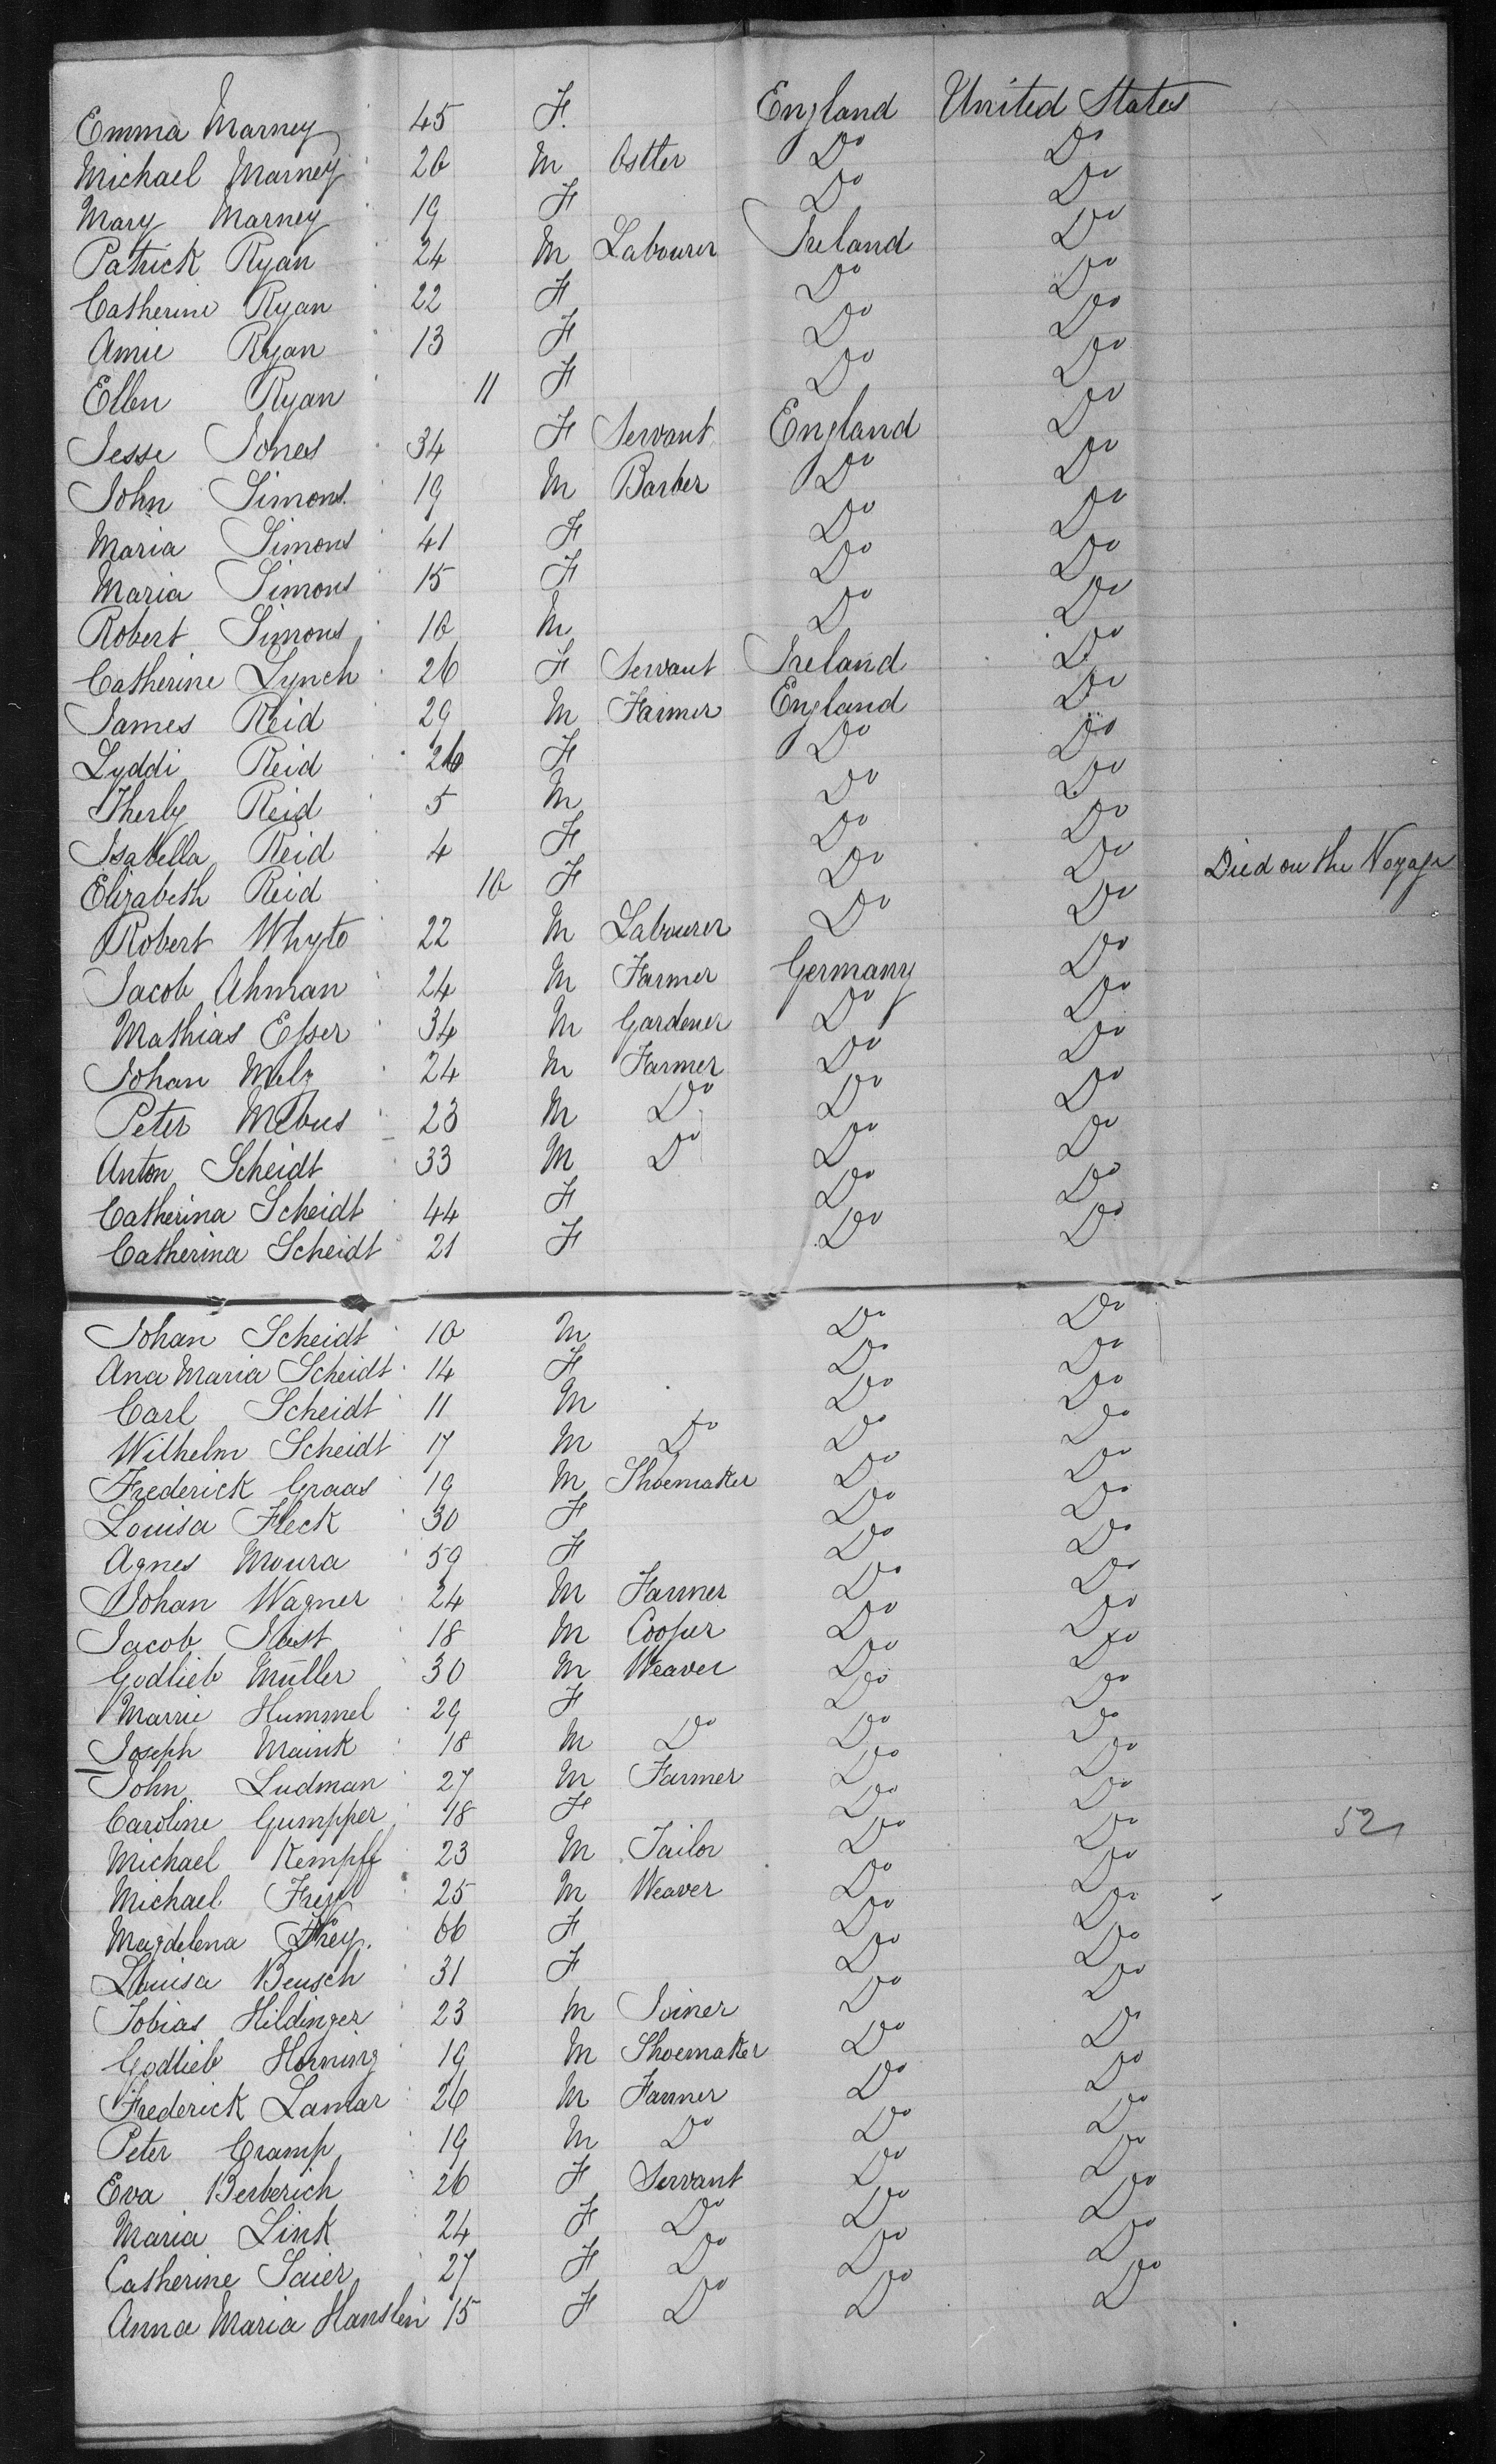 Emma Marney 45 F. England United States
Michael Marney 26 M Ostler Do Do
Mary Marney 19 F Do Do
Patrick Ryan 24 M Labourer Ireland Do
Catherine Ryan 22 F Do Do
Amie Ryan 13 F Do Do
Ellen Ryan 11 F Do Do
Jesse Jones 34 F Servant England Do
John Simons 19 M Barber Do Do
Maria Simons 41 F Do Do
Maria Simons 15 F Do Do
Robert Simons 10 M Do Do
Catherine Lynch 26 F Servant Ireland Do
James Reid 29 M Farmer England Do
Lyddi Reid 26 F Do Do
Therby Reid 5 M Do Do
Isabella Reid 4 F Do Do
Elizabeth Reid 10 F Do Do Died on the Voyage
Robert Whyto 22 M Labourer Do Do
Jacob Ahman 24 M Farmer Germany Do
Mathias Esser 34 M Gardener Do Do
Johan Melz 24 M Farmer Do Do
Peter Mebus 23 M Do Do Do
Anton Scheidt 33 M Do Do Do
Catherina Scheidt 44 F Do Do
Catherina Scheidt 21 F Do Do
Johan Scheidt 10 M Do Do
Ana Maria Scheidt 14 F Do Do
Carl Scheidt 11 M Do Do
Wilhelm Scheidt 17 M Do Do Do
Frederick Graas 19 M Shoemaker Do Do
Louisa Fleck 30 F Do Do
Agnes Moura 59 F Do Do
Johan Wagner 24 M Farmer Do Do
Jacob 18 M Cooper Do Do
Godlieb Müller 30 M Weaver Do Do
Marrie Hummel 29 F Do Do
Joseph Maink 18 M Do Do Do
John Ludman 27 M Farmer Do Do
Caroline Gumpper 18 F Do Do 52
Michael Kempff 23 M Tailor Do Do
Michael Frey 25 M Weaver Do Do
Magdelena Frey. 66 F Do Do
Louisa Beusch 31 F Do Do
Tobias Hildinger 23 M Joiner Do Do
Godlieb Horning 19 M Shoemaker Do Do
Frederick Lamar 26 M Farmer Do Do
Peter Cramp 19 M Do Do Do
Eva Berberich 26 F Servant Do Do
Maria Link 24 F Do Do Do
Catherine Saier 27 F Do Do Do
Anna Maria Hanslein 15 F Do Do Do